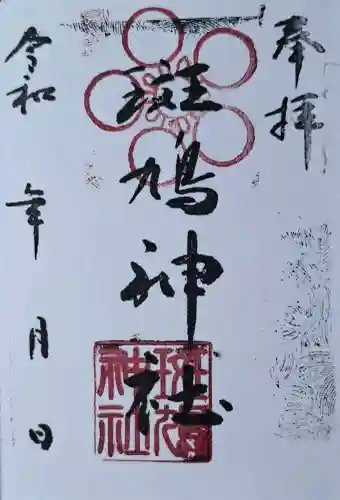 奉拝
斑鳩神社
斑鳩神社
令和 年 月 日